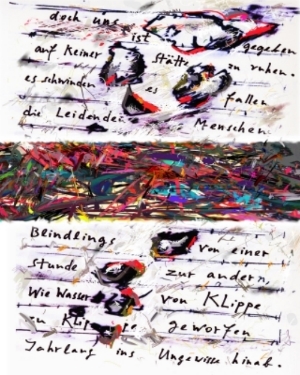 doch uns ist gegeben
auf Keiner Stätte zu ruhen.
es schwinden es fallen
die Leidenden Menschen
Blindlings von einer
stunde zur andern,
Wie Wasser von Klippe
zu Klippe geworfen
Jahrlang ins Ungewisse hinab.